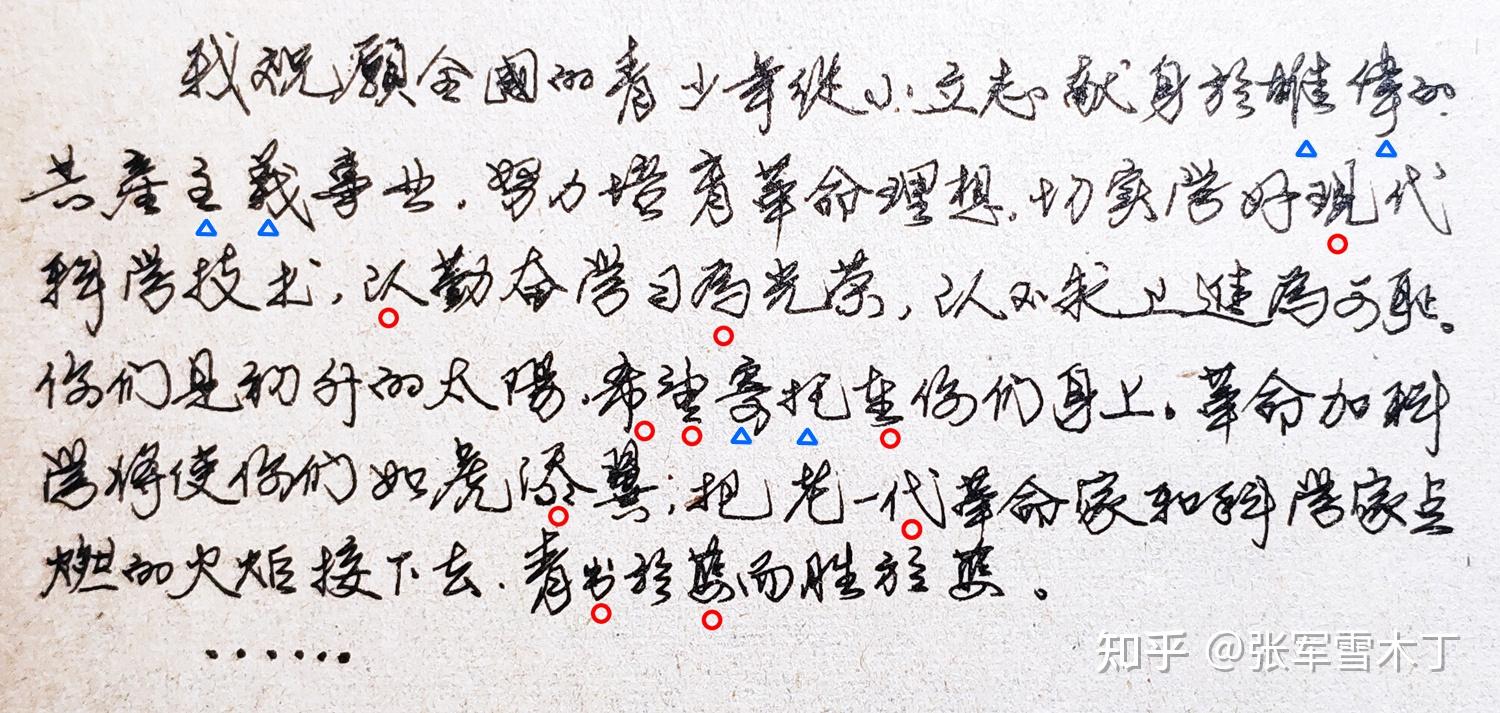 我祝願全國的青少年從小立志献身於雄偉的
共產主義事业，努力培育革命理想，切实学好现代
科学技术，以勤奋学习為光荣，以不求上進為可耻。
你们是初升的太陽，希望寄托在你们身上。革命加科
学将使你们如虎添翼；把老一代革命家和科学家点
燃的火炬接下去，青出於蓝而胜於蓝。
……
知乎 @张军雪木丁